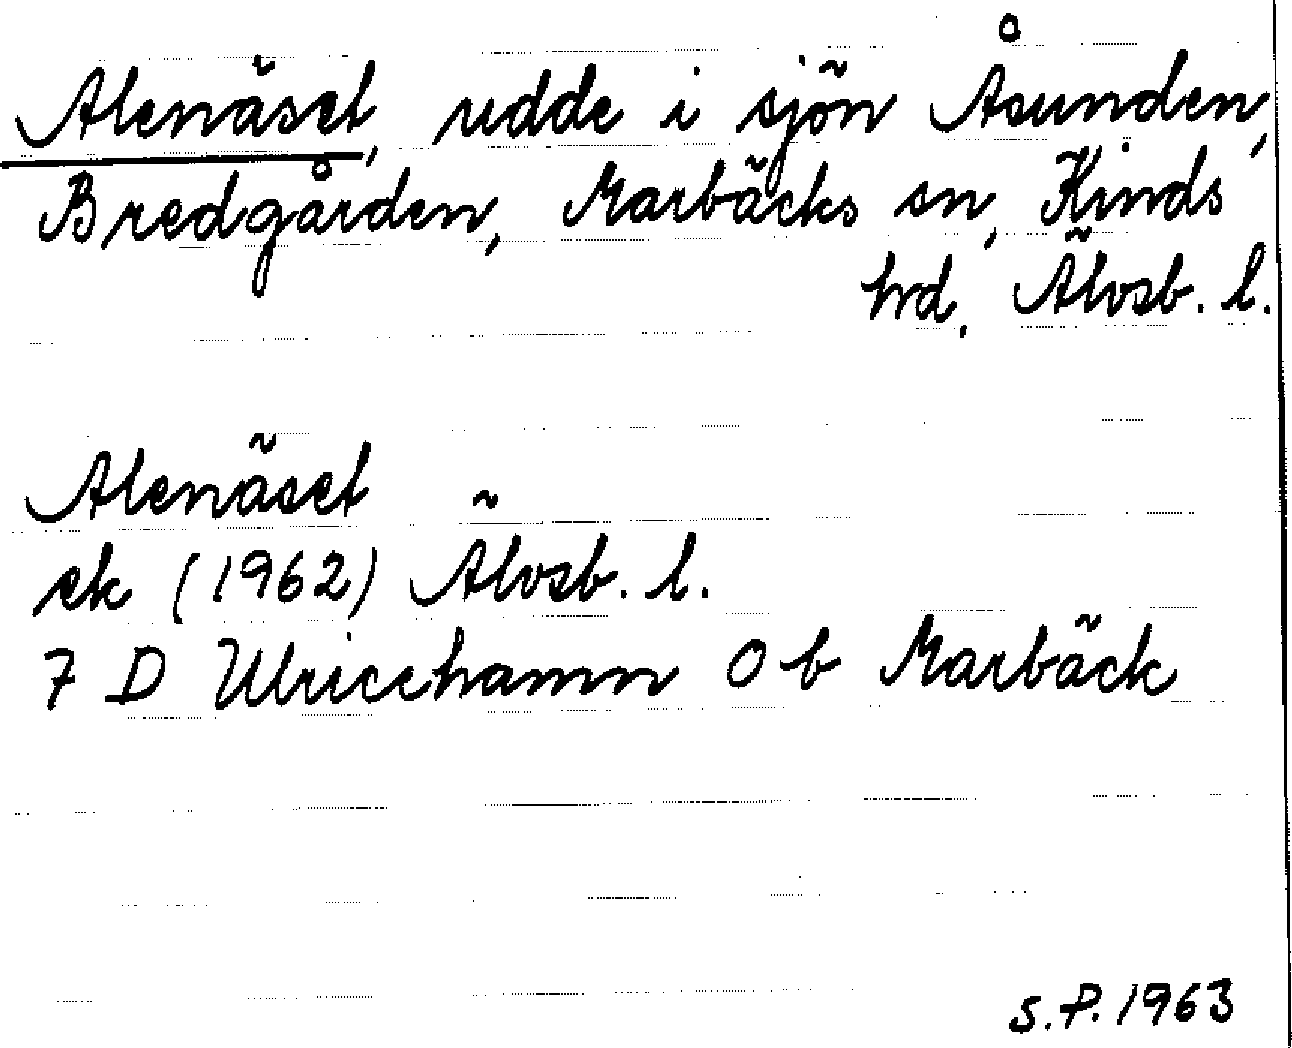 Alenäset, udde i sjön Åsunden,
Bredgården, Marbäcks sn, Kinds
hd, Älvsb. l.
Alenäset
ek (1962) Älvsb. l.
7 D Ulricehamn 0 b Marbäck
S.P. 1963